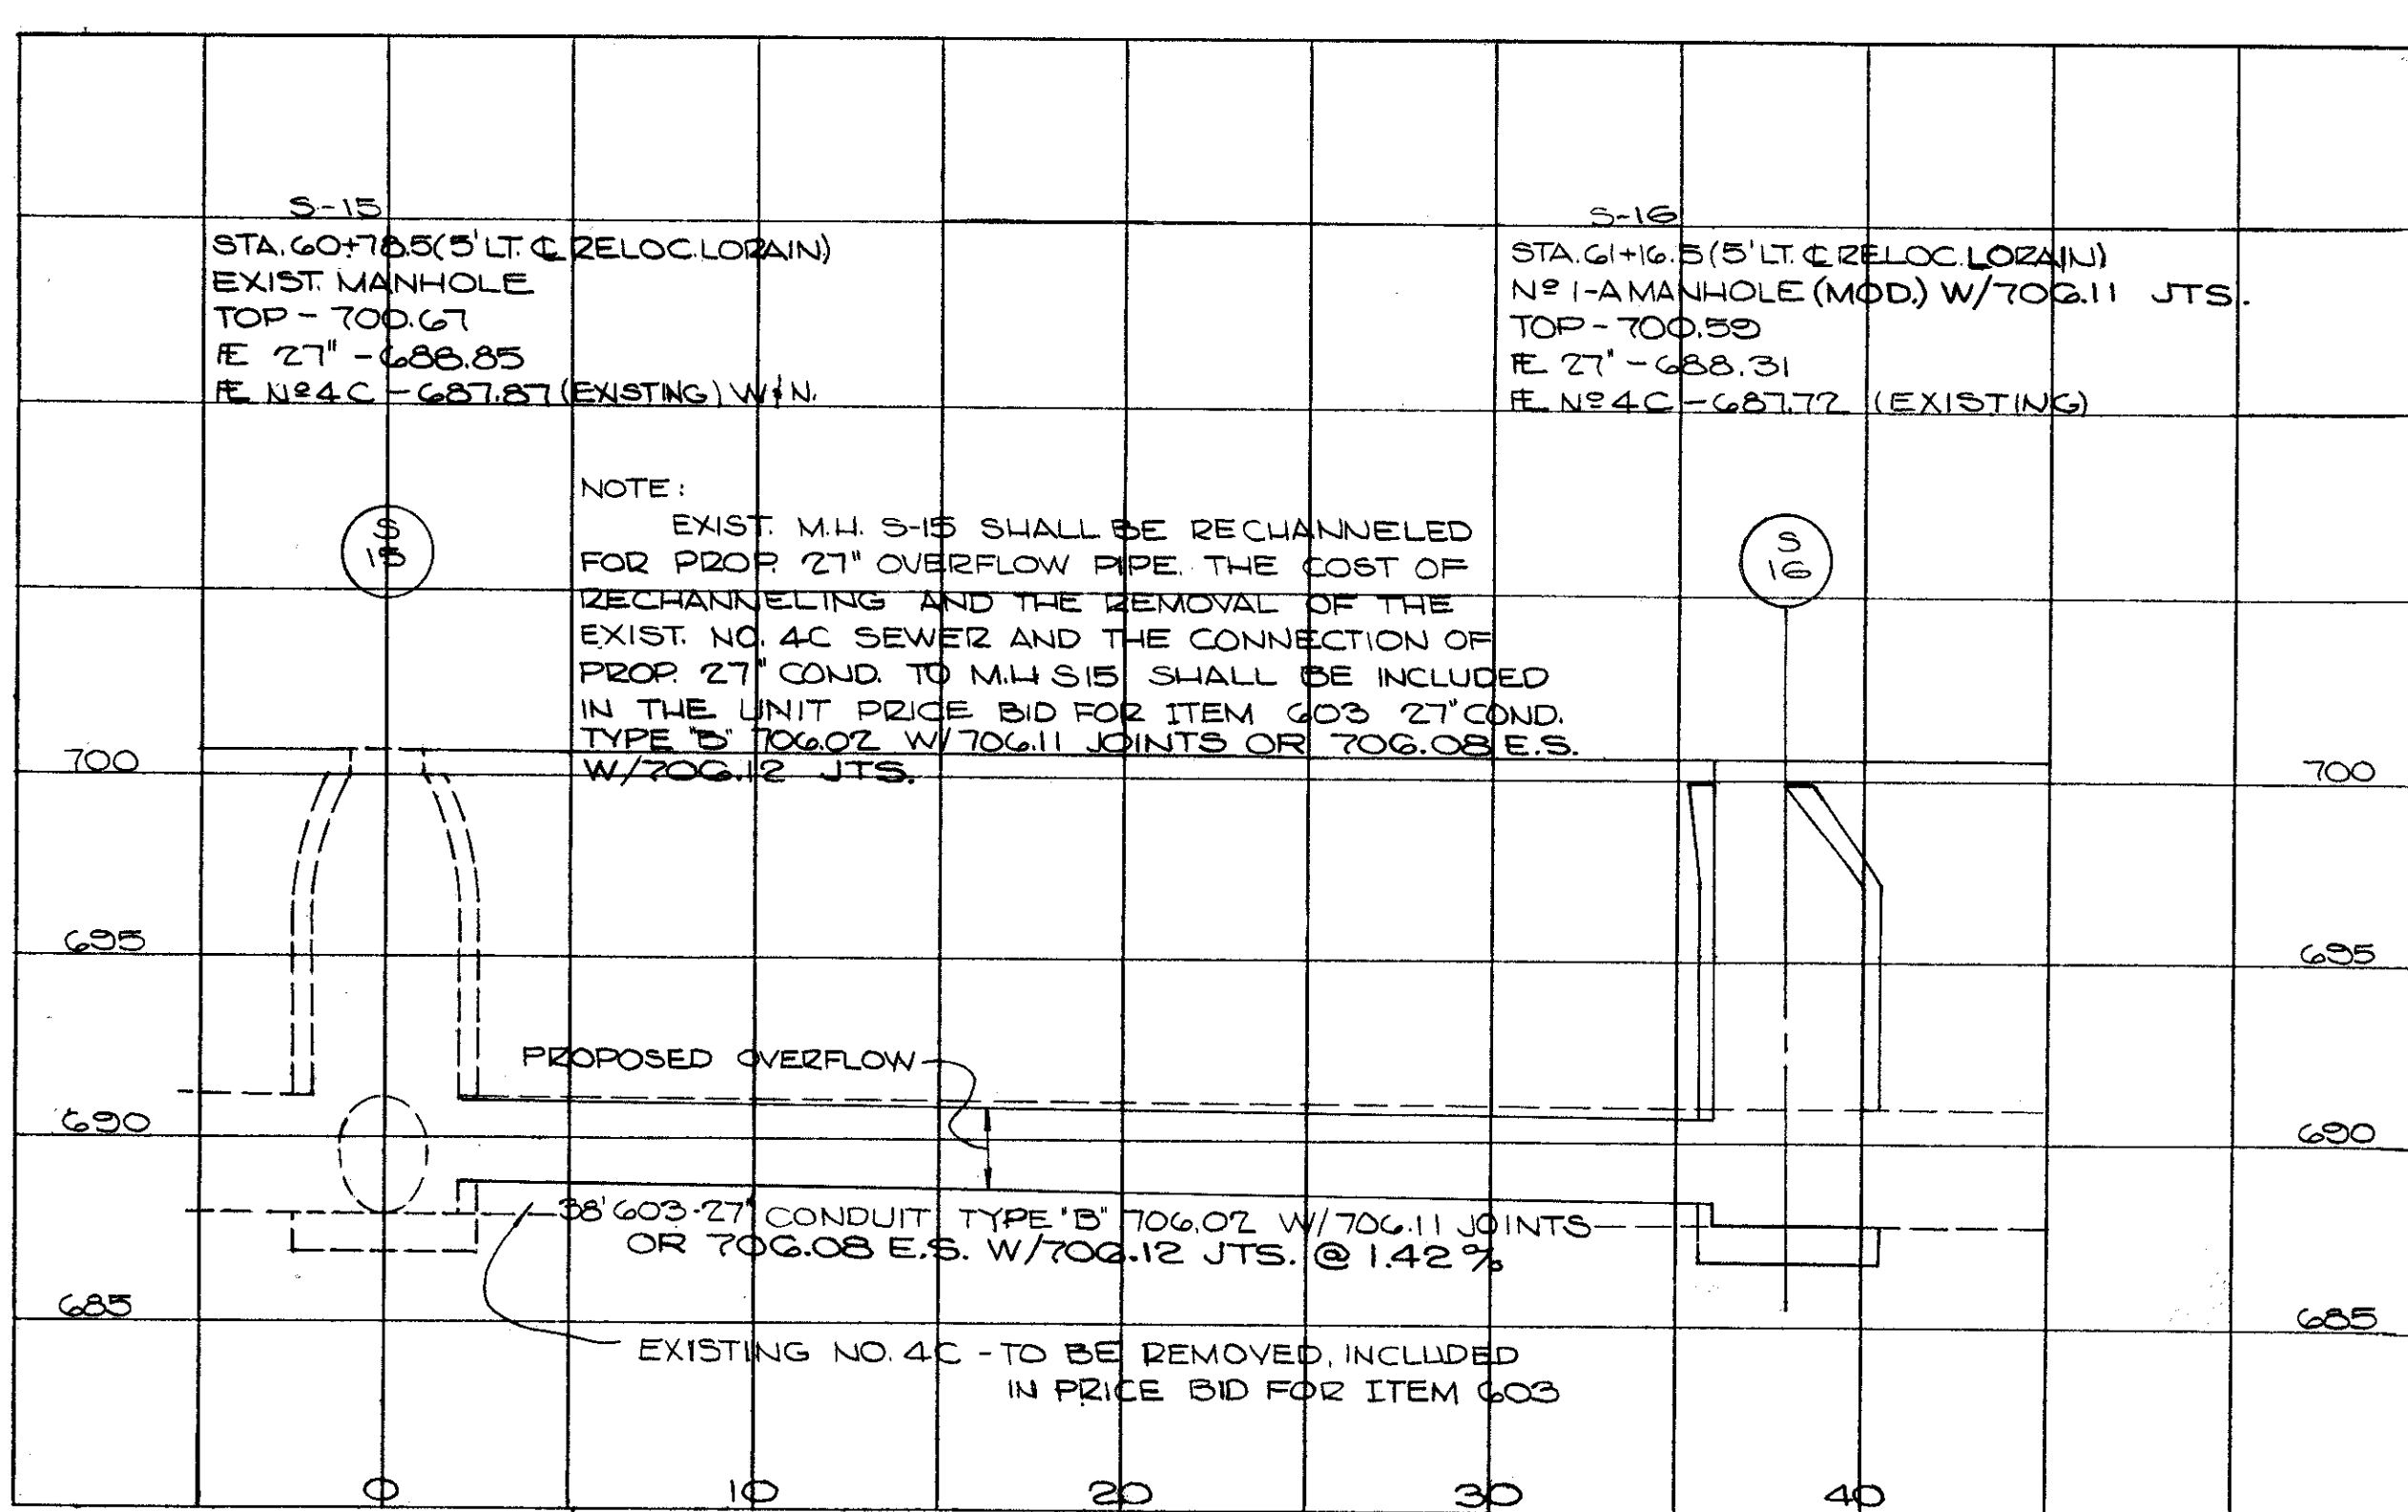 S-15
STA. 60+78.5 (5' LT. ℄ RELOC. LORAIN)
EXIST. MANHOLE
TOP - 700.67
FE 27" - 688.85
FE Nº 4C - 687.87 (EXISTING) W & N.
S-16
STA. 61+16.5 (5' LT. ℄ RELOC. LORAIN)
Nº 1-A MANHOLE (MOD.) W/706.11 JTS.
TOP - 700.59
FE 27" - 688.31
FE Nº 4C - 687.72 (EXISTING)
S
15
S
16
NOTE:
EXIST. M.H. S-15 SHALL BE RECHANNELED
FOR PROP. 27" OVERFLOW PIPE. THE COST OF
RECHANNELING AND THE REMOVAL OF THE
EXIST. NO. 4C SEWER AND THE CONNECTION OF
PROP. 27" COND. TO M.H S15 SHALL BE INCLUDED
IN THE UNIT PRICE BID FOR ITEM 603 27" COND.
TYPE "B" 706.02 W/706.11 JOINTS OR 706.08 E.S.
W/706.12 JTS.
700
700
695
695
PROPOSED OVERFLOW
690
690
38' 603-27" CONDUIT TYPE "B" 706.02 W/706.11 JOINTS
OR 706.08 E.S. W/706.12 JTS. @ 1.42 %
685
685
EXISTING NO. 4C - TO BE REMOVED, INCLUDED
IN PRICE BID FOR ITEM 603
0
10
20
30
40